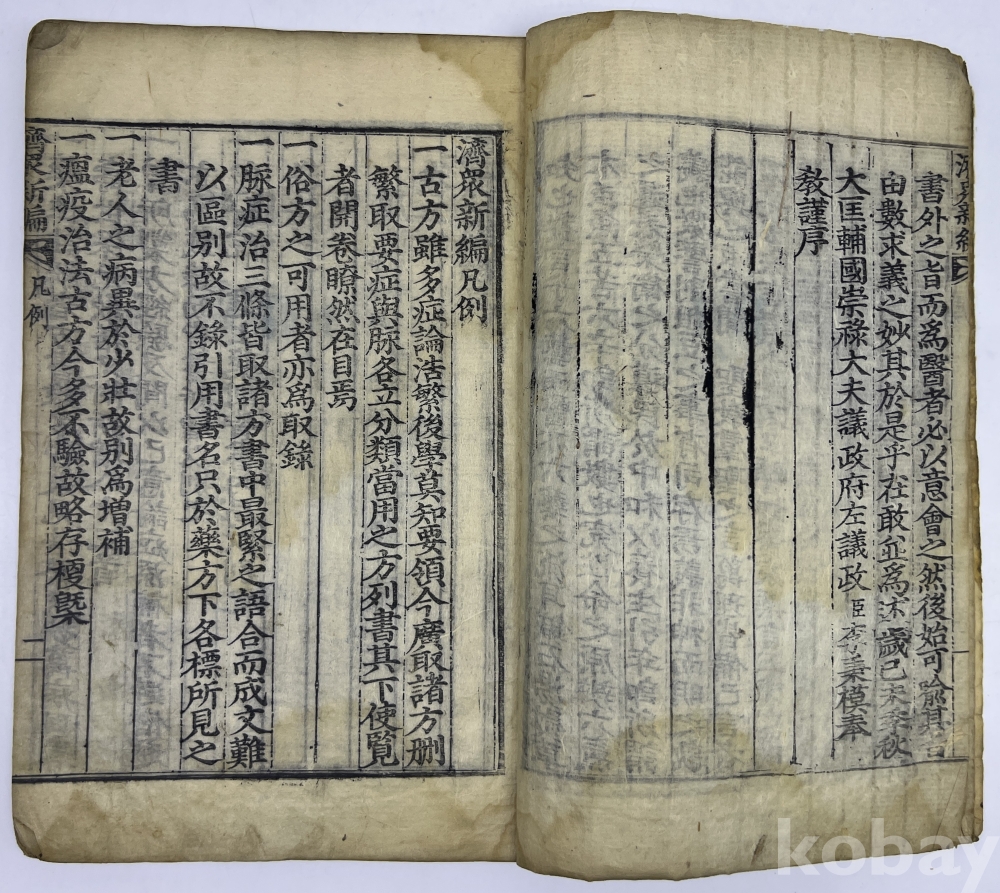 書外之旨而爲醫者必以意會之然後始可喩其言
由數求義之妙其於是乎在敢並爲述歲己未季秋
大匡輔國崇祿大夫議政府左議政臣李秉模奉
敎謹序
濟衆新編凡例
一古方雖多症論浩繁後學莫知要領今廣取諸方删
繁取要症與脉各立分類當用之方列書其下使覽
者開卷瞭然在目焉
一俗方之可用者亦爲取錄
一脉症治三條皆取諸方書中最緊之語合而成文難
以區別故不錄引用書名只於藥方下各標所見之
書
一老人之病異於少壯故別爲增補
一瘟疫治法古方今多不驗故略存梗槩
濟衆新編 凡例 一
kobay